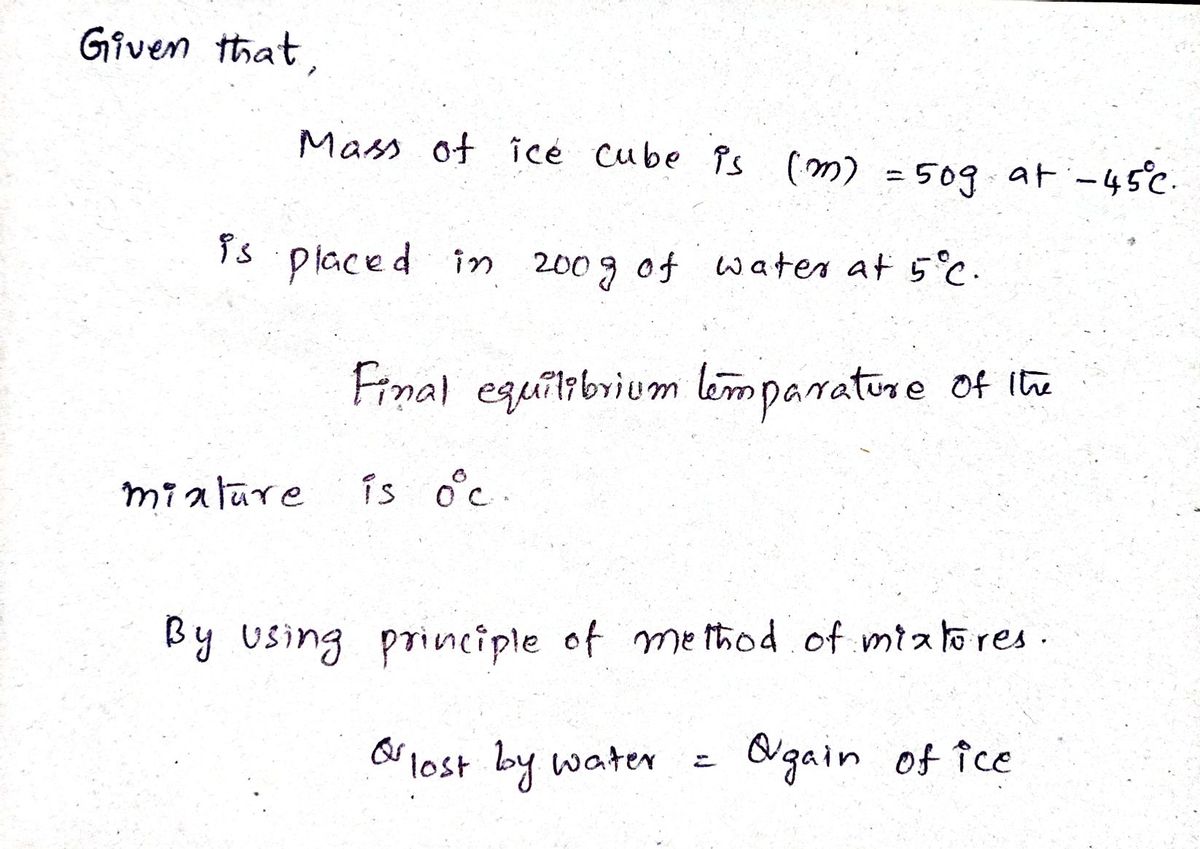 Given that,
Mass of ice cube is (m) = 50g at -45°C.
is placed in 200g of water at 5°C.
Final equilibrium temparature of the
mixture is 0°C.
By using principle of method of mixtures.
Q lost by water = Q gain of ice